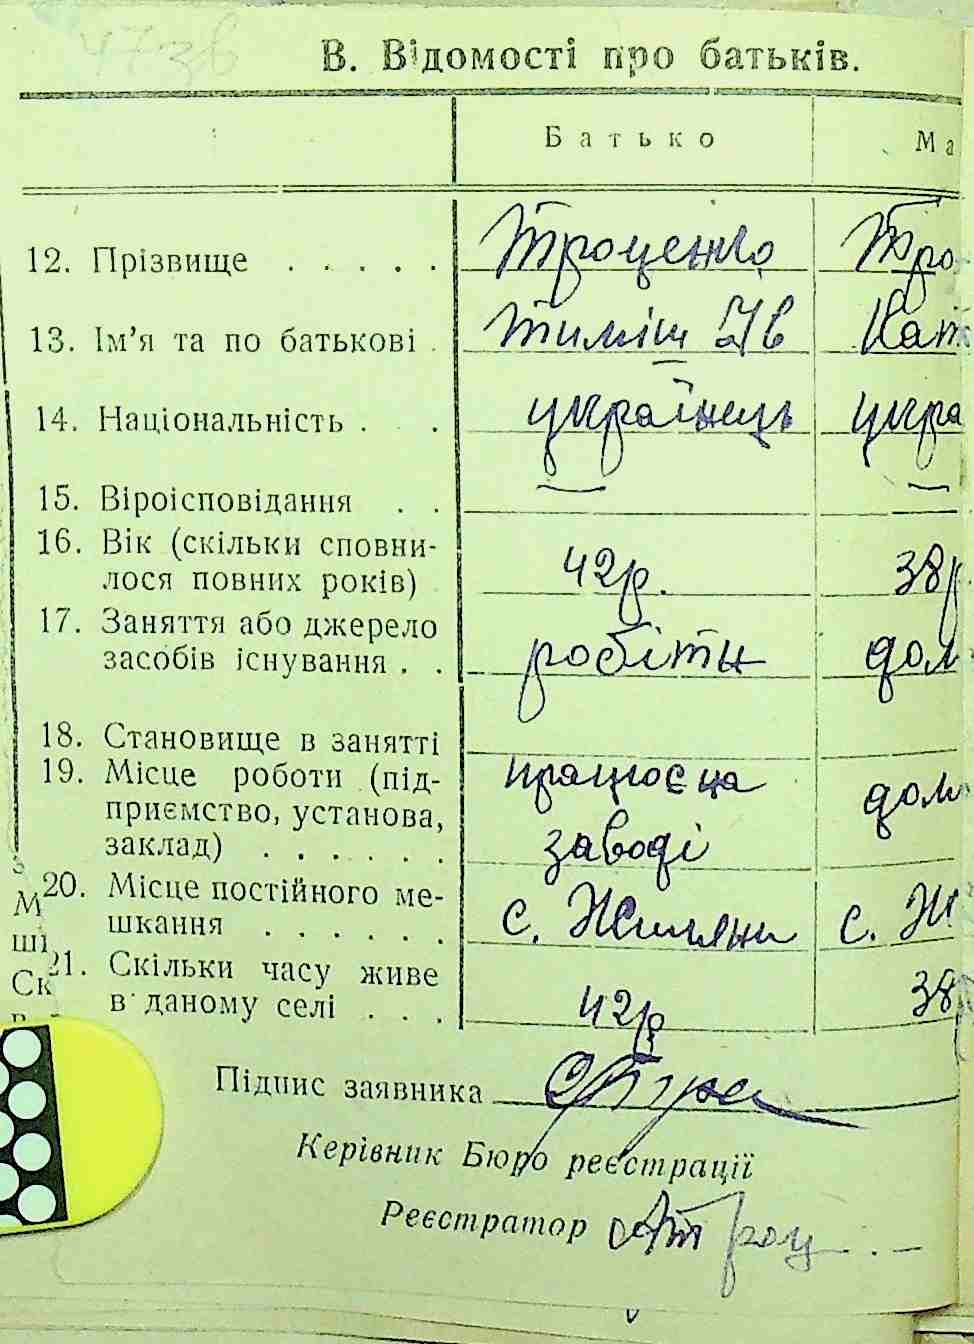 47зв
В. Відомості про батьків.
Батько Ма
12. Прізвище . . . . . Троценко Тро
13. Ім’я та по батькові . Тиміш Ів Кат
14. Національність . . . українець укра
15. Віроісповідання . . — —
16. Вік (скільки сповни-
лося повних років) 42р. 38р
17. Заняття або джерело
засобів існування . . робітн дом
18. Становище в занятті
19. Місце роботи (під- працює на
приємство, установа, дом
заклад) . . . . . . заводі
20. Місце постійного ме-
шкання . . . . . . с. Жиляни с. Ж
21. Скільки часу живе
в даному селі . . . 42р 38
М
ші
Ск
Підпис заявника
Керівник Бюро реєстрації
Реєстратор